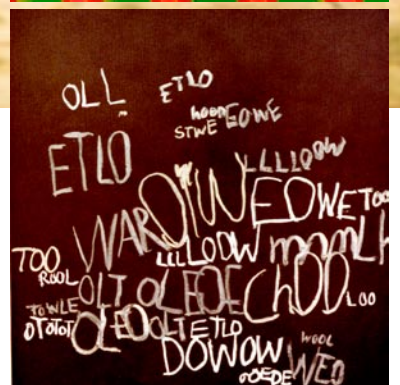 OLL ETLO
hood EOWE
STWE
ETLO
LLLLOOW
WAROIW EOWETOO
TOO LLLLOOW mmmLh
ROOL OLT OLEOE ChOD LOO
TOWLE
OTOTOT OLEOOLTETLO WOOL
DOWOW WED
OEDE